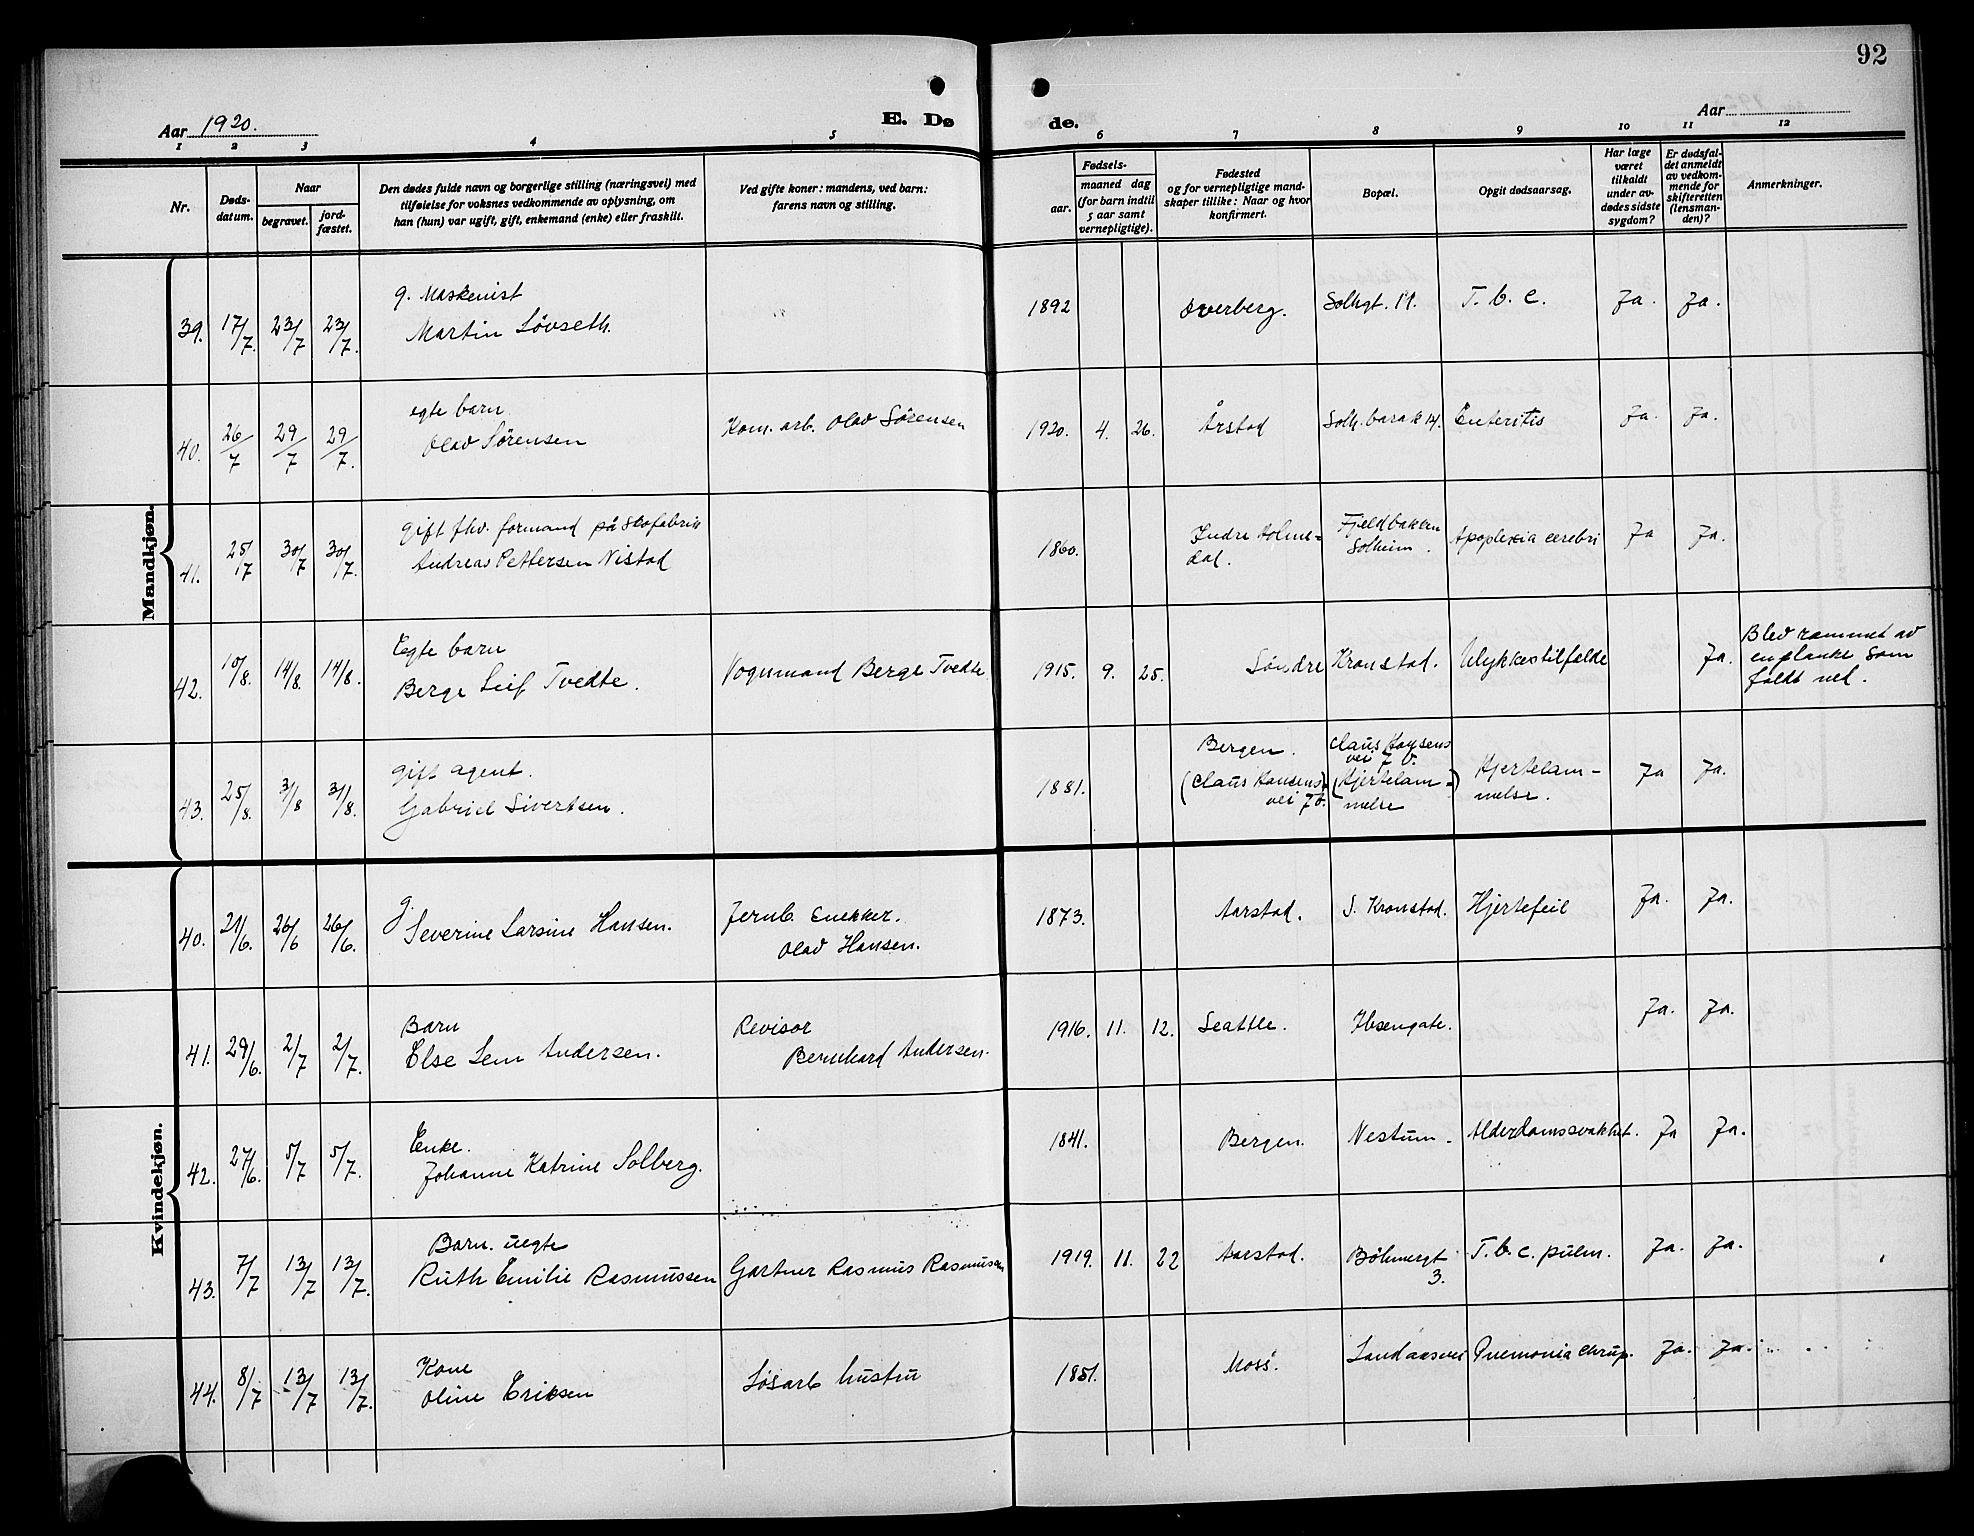 92
Aar 1920.
E. Dø de.
Aar
1 2 3 4 5 6 7 8 9 10 11 12
Nr.
Døds-
datum.
Naar
begravet.
jord-
fæstet.
Den dødes fulde navn og borgerlige stilling (næringsvei) med
tilføielse for voksnes vedkommende av oplysning, om
han (hun) var ugift, gift, enkemand (enke) eller fraskilt.
Ved gifte koner: mandens, ved barn:
farens navn og stilling.
Fødsels-
aar.
maaned dag
(for barn indtil
5 aar samt
vernepligtige).
Fødested
og for vernepligtige mand-
skaper tillike: Naar og hvor
konfirmert.
Bopæl.
Opgit dødsaarsag.
Har læge
været
tilkaldt
under av-
dødes sidste
sygdom?
Er dødsfal-
det anmeldt
av vedkom-
mende for
skifteretten
(lensman-
den)?
Anmerkninger.
Mandkjøn.
g. Maskenist
39. 17/7. 23/7 23/7. Martin Løvseth. 1892 Overberg. Solhgt. 11. T. b. c. Ja. Ja.
egte barn
40. 26/7 29/7 29/7. Olav Sørensen Kom. arb. Olav Sørensen 1920. 4. 26. Årstad Solh. barak 14. Enteritis Ja. Ja.
gift fhv. formand på Skofabrik
41. 25/7 30/7 30/7. Andreas Pettersen Nistad 1860. Indre Holme=
dal.
Fjeldbakken
Solheim.
Apoplexia cerebri Ja Ja.
Egte barn
42. 10/8. 14/8. 14/8. Berge Leif Tvedte. Vognmand Berge Tvedte 1915. 9. 25. Søndre Kronstad. Ulykkestilfælde Ja.
Blev rammet av
en planke som
faldt ned.
gift agent.
43. 25/8. 31/8 31/8. Gabriel Sivertsen. 1881.
Bergen.
(Claus Hansens
vei 7b.
Claus Hansens
vei 7b.
(Hjertelam=)
melse
Hjertelam-
melse.
Ja Ja.
Kvindekjøn.
g.
40. 21/6. 26/6 26/6. Severine Larsine Hansen. Jernb. Snekker.
Olav Hansen.
1873. Aarstad. S. Kronstad. Hjertefeil Ja. Ja.
Barn
41. 29/6. 2/7 2/7. Else Lem Andersen. Revisor
Bernhard Andersen.
1916. 11. 12. Seattle. Ibsengate. Ja. Ja.
Enke.
42. 27/6. 5/7 5/7. Johanne Katrine Solberg. 1841. Bergen. Nestun. Alderdomssvakhet. Ja Ja.
Barn. uegte
43. 7/7 13/7 13/7. Ruth Emilie Rasmussen Gartner Rasmus Rasmussen 1919. 11. 22 Aarstad. Böhmergt
3.
T. b. c. pulm. Ja. Ja.
Kone
44. 8/7 13/7 13/7. Oline Eriksen Løsarb hustru 1851. Moss. Landaasvei Pnemonia chrup. Ja. Ja.